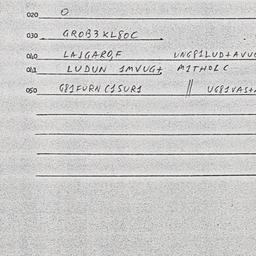 020 O
030 GROB3KL8OC
040 LAJGARO,F UNG81LUD+AVU
041 LUDUN 1MVUG+ M1THOLC
050 G81FURNC1SUR1 // UG81VAS+